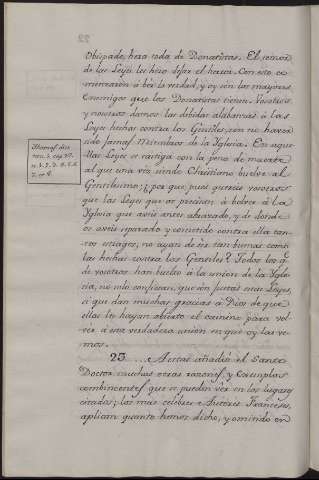 22
Obispado, hera toda de Donatistas. El temor
de las Leyes les hizo dejar el herror. Con esto co-
menzaron à ver la verdad, y oy son los mayores
Enemigos que los Donatistas tienen. Vosotros
y nosotros damos las debidas alabanzas à las
Leyes hechas contra los Gentiles, con no haver
sido jamas Miembros de la Yglesia. En aque-
llas Leyes se castiga con la pena de muerte
al que una vez siendo Christiano buelve al
Gentilismo; ¿por que pues quereis vosotros
que las Leyes que os precisan à bolver à la
Yglesia que aveis antes abrazado, y de donde
os aveis separado y cometido contra ella tan-
tos ultrages, no ayan de ser tan buenas como
las hechas contra los Gentiles? Todos los q.
de vosotros han buelto à la union de la Ygle-
sia, no solo confiesan, que son justas esas Leyes,
si que dan muchas gracias à Dios de que
ellas les hayan abierto el camino para vol-
ver à esta verdadera union en que oy las ve-
mos.
23 A estas añadió el Santo
Doctor muchas otras razones y Exemplos
combincentes que se pueden ver en los lugares
citados; los mas celebres Autores Franceses,
aplican quanto hemos dicho, y omitido en